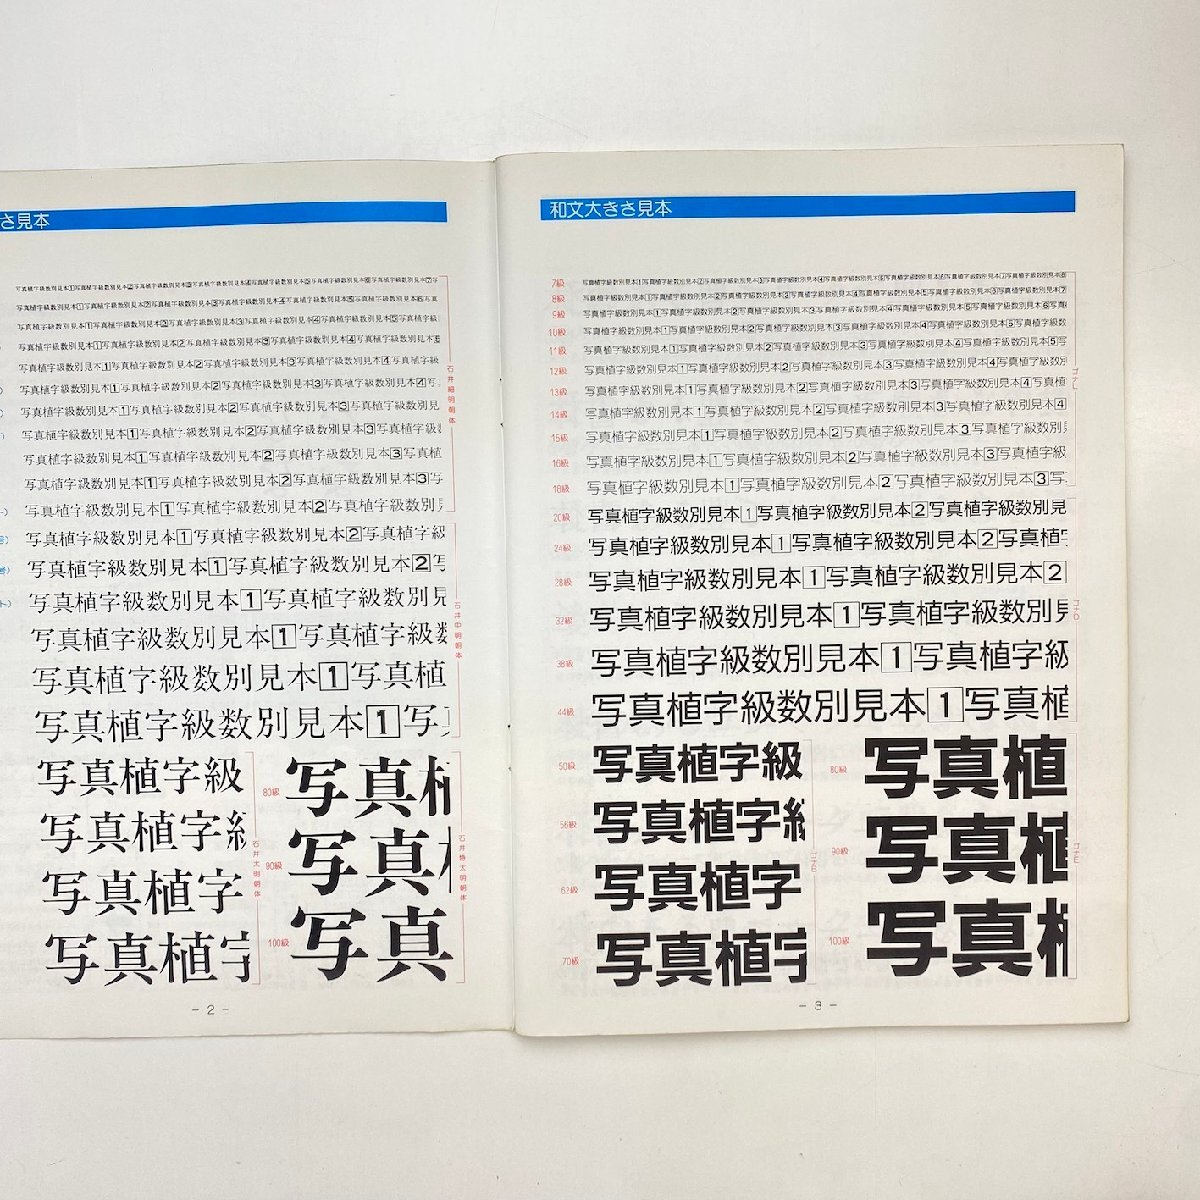 さ見本
写真植字級数別見本1写真植字級数別見本2写真植字級数別見本3写真植字級数別見本4写真植字級数別見本5写真植字級数別見本6写真植字級数別見本7
写真植字級数別見本1写真植字級数別見本2写真植字級数別見本3写真植字級数別見本4写真植字級数別見本5写真植字級数別見本6写真
写真植字級数別見本1写真植字級数別見本2写真植字級数別見本3写真植字級数別見本4写真植字級数別見本5写真植字級
写真植字級数別見本1写真植字級数別見本2写真植字級数別見本3写真植字級数別見本4写真植字級数別
写真植字級数別見本1写真植字級数別見本2写真植字級数別見本3写真植字級数別見本4写真植字級
写真植字級数別見本1写真植字級数別見本2写真植字級数別見本3写真植字級数別見本4
写真植字級数別見本1写真植字級数別見本2写真植字級数別見本3写真植字級数別見
写真植字級数別見本1写真植字級数別見本2写真植字級数別見本3写真植字級数
写真植字級数別見本1写真植字級数別見本2写真植字級数別見本3写真植
写真植字級数別見本1写真植字級数別見本2写真植字級数別見本3
写真植字級数別見本1写真植字級数別見本2写真植字級数別見
石井細明朝体
写真植字級数別見本1写真植字級数別見本2写真植字級
写真植字級数別見本1写真植字級数別見本2
写真植字級数別見本1写真植字級数別見
写真植字級数別見本1写真植字級数
写真植字級数別見本1写真植
写真植字級数別見本1写真
石井中明朝体
写真植字級
写真植字級
写真植字
写真植字
石井太明朝体
80級 写真植
90級 写真
100級 写真
石井特太明朝体
- 2 -
和文大きさ見本
7級 写真植字級数別見本1写真植字級数別見本2写真植字級数別見本3写真植字級数別見本4写真植字級数別見本5写真植字級数別見本6写真植字級数別見本7写真植字級数別見本8
8級 写真植字級数別見本1写真植字級数別見本2写真植字級数別見本3写真植字級数別見本4写真植字級数別見本5写真植字級数別見本6写真植字級数別見本7
9級 写真植字級数別見本1写真植字級数別見本2写真植字級数別見本3写真植字級数別見本4写真植字級数別見本5写真植字級数別見本6写真
10級 写真植字級数別見本1写真植字級数別見本2写真植字級数別見本3写真植字級数別見本4写真植字級数別見本5写真植字級数
11級 写真植字級数別見本1写真植字級数別見本2写真植字級数別見本3写真植字級数別見本4写真植字級数別見本5写
12級 写真植字級数別見本1写真植字級数別見本2写真植字級数別見本3写真植字級数別見本4写真植字級数別
13級 写真植字級数別見本1写真植字級数別見本2写真植字級数別見本3写真植字級数別見本4写真植
14級 写真植字級数別見本1写真植字級数別見本2写真植字級数別見本3写真植字級数別見本4
15級 写真植字級数別見本1写真植字級数別見本2写真植字級数別見本3写真植字級数別見
16級 写真植字級数別見本1写真植字級数別見本2写真植字級数別見本3写真植字級
18級 写真植字級数別見本1写真植字級数別見本2写真植字級数別見本3写
20級 写真植字級数別見本1写真植字級数別見本2写真植字級数別見
24級 写真植字級数別見本1写真植字級数別見本2写真植
28級 写真植字級数別見本1写真植字級数別見本2
32級 写真植字級数別見本1写真植字級数別見
38級 写真植字級数別見本1写真植字級
44級 写真植字級数別見本1写真植
50級 写真植字級
56級 写真植字級
62級 写真植字
70級 写真植字
80級 写真植
90級 写真植
100級 写真植
- 3 -